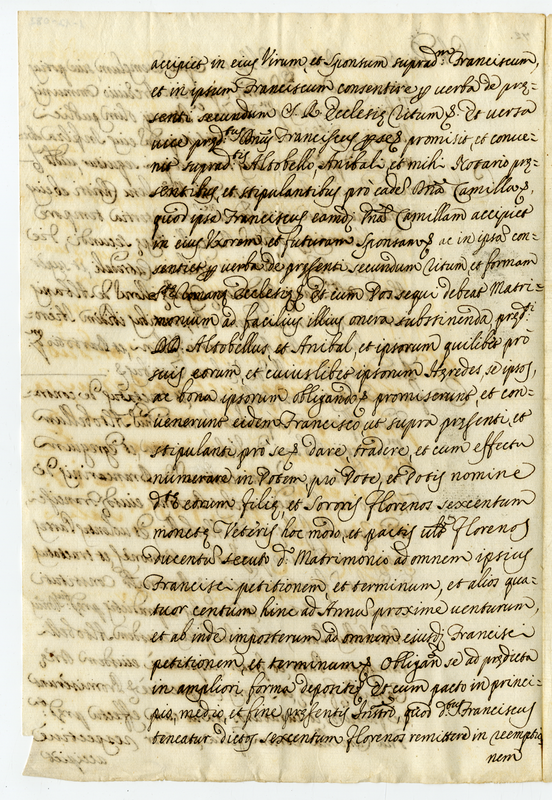 accipiet in eius Virum, et Sponsum suprad.m Franciscum,
et in ipsum Franciscum consentire p verba de prę:
senti secundum S. R. Ecclesię Ritum &. Et versa
vice pred.tus Dnus Franciscus p se & promisit, et conue:
nit suprad.tis Altobello, Anibali et mihi Notario prę:
sentibus, et stipulantibus pro eade Dna Camilla &.
quod ipse Franciscus eamdē Dnā Camillam accipiet
in eius Uxorem et futuram Sponsam & ac in ipsā con:
sentiet p verba de presenti secundum Ritum et formam
S.tę Romanę Ecclesię & Et cum Dos sequi debeat Matri:
monium ad facilius illius onera substinenda pręd.ti
DD. Altobellus et Anibal, et ipsorum quilibet prò
suis eorum, et cuiuslibet ipsorum Hęredes se ipsos,
ac bona ipsorum obligando & promiserunt et con:
uenerunt eidem Francisco ut supra presenti, et
stipulanti prò se & dare, tradere, et cum effectu
numerare in Dotem, prò Dote, et Dotis nomine
d.tę eorum filię, et Sororis florenos sexcentum
monetę Veteris hoc modo, et pactis florenos
ducentus secuto d.o Matrimonio ad omnem ipsius
Francisci petitionem et terminum, et alios qua:
tuor centum hinc ad Annū proxime venturum,
et ab inde imposterum ad omnem eiusd. Francisci
petitionem, et terminum & Obligan. se ad prędicta
in ampliori forma depositi & Et cum pacto in princi:
pio, medio, et fine presentis Instri, quod d.tus Franciscus
teneatur dictos sexcentum florenos remittere in reemptio
nem